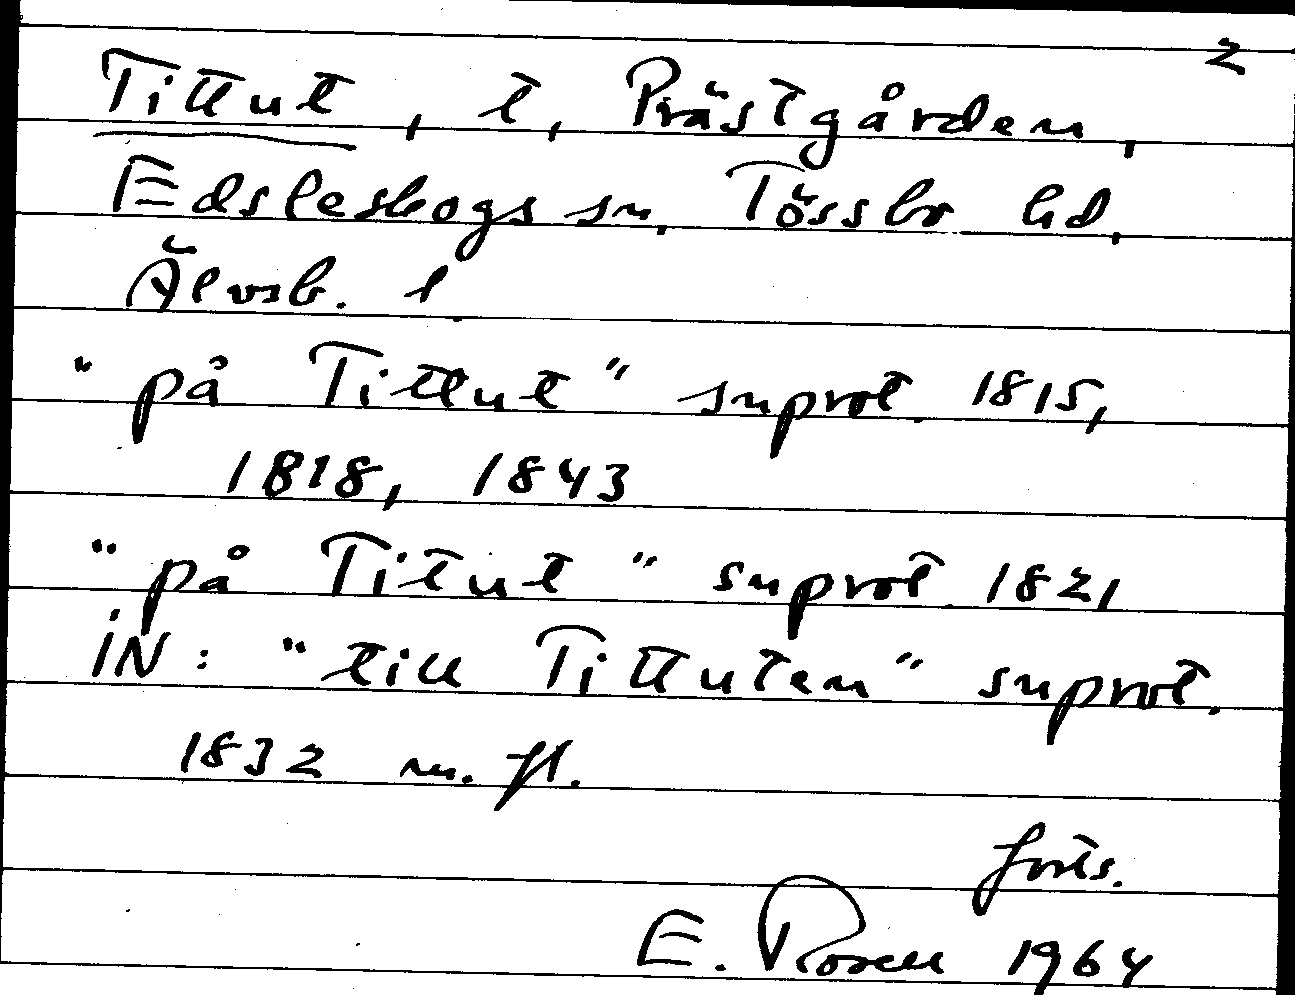 2
Tittut, t, Prästgården,
Edsleskogs sn, Tössbo hd,
Älvsb. l
"på Tittut" snprot. 1815,
1818, 1843
"på Titut" snprot. 1821
IN: "till Tittuten" snprot.
1832 m. fl.
forts.
E. Rosell 1964